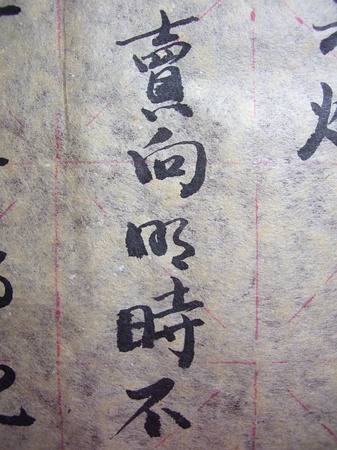 賣向明時不